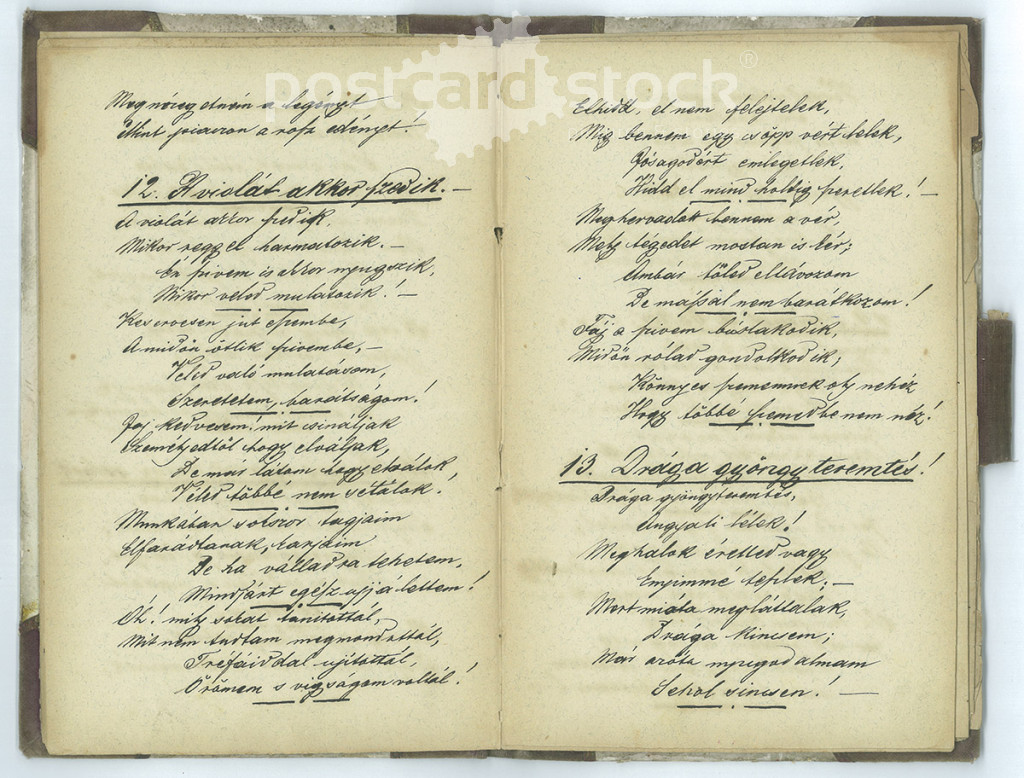 postcard stock®
Megnézegetném a legényt
Mint piaczon a rosz edényt!
12. A violát akkor szedik. —
A violát akkor szedik,
Mikor reggel harmatozik. —
Én szivem is akkor nyugszik,
Mikor veled mulatozik! —
Keservesen jut eszembe,
A midőn ötlik szivembe, —
Veled való mulatásom,
Szeretetem, barátságom!
Jaj kedvesem! mit csináljak
Személyedtől hogy elváljak,
De már látom hogy elválok,
Veled többé nem sétálok!
Munkában sokszor tagjaim
Elfáradtanak, karjaim
De ha válladra tehetem,
Mindjárt egész ujjá lettem!
Oh! mily sokat tanítottál,
Mit nem tudtam megmondottál,
Tréfáiddal ujitottál,
Örömem s vigságom voltál!
Elhidd, el nem felejtelek,
Mig bennem egy csöpp vért lelek,
Jóságodért emlegetlek,
Hidd el mind holtig szeretlek! —
Meghervadott bennem a vér,
Mely tégedet mostan is kér;
Ámbár tőled eltávozom
De mással nem barátkozom!
Fáj a szivem búslakodik,
Midőn rólad gondolkodik;
Könnyes szememnek oly nehéz
Hogy többé szemedbe nem néz!
13. Drága gyöngy teremtés!
Drága gyöngyteremtés,
Angyali lélek!
Meghalok éretted vagy
Enyimmé teszlek. —
Mert mióta megláttalak,
Drága kincsem;
Már azóta nyugodalmam
Sehol sincsen! —